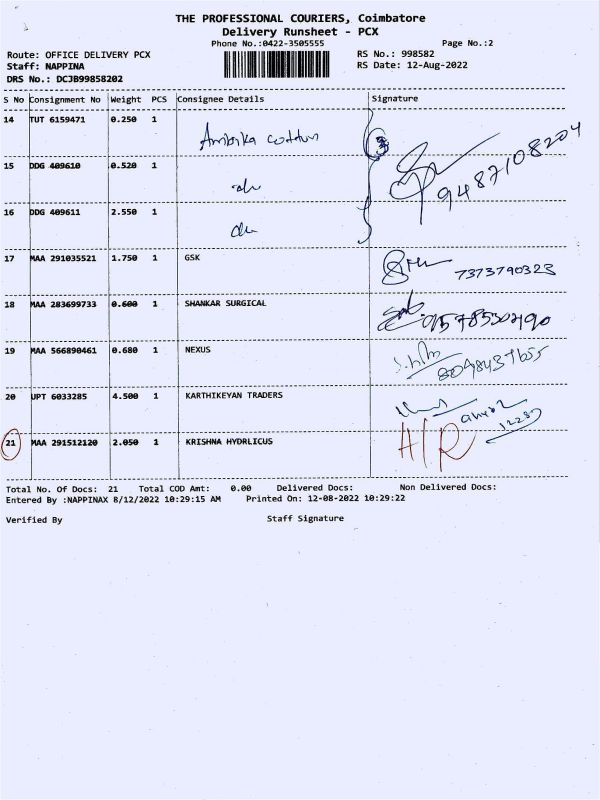 THE PROFESSIONAL COURIERS, Coimbatore
Delivery Runsheet - PCX
Phone No.:0422-3505555 Page No.:2
Route: OFFICE DELIVERY PCX RS No.: 998582
Staff: NAPPINA RS Date: 12-Aug-2022
DRS No.: DCJB99858202
S No Consignment No Weight PCS Consignee Details Signature
14 TUT 6159471 0.250 1 Ambika cotton 3
15 DDG 409610 0.520 1 do 9487108204
16 DDG 409611 2.550 1 do
17 MAA 291035521 1.750 1 GSK 7373790323
18 MAA 283699733 0.600 1 SHANKAR SURGICAL
19 MAA 566890461 0.680 1 NEXUS
20 UPT 6033285 4.500 1 KARTHIKEYAN TRADERS
21 MAA 291512120 2.050 1 KRISHNA HYDRLICUS H/R
Total No. Of Docs: 21 Total COD Amt: 0.00 Delivered Docs: Non Delivered Docs:
Entered By :NAPPINAX 8/12/2022 10:29:15 AM Printed On: 12-08-2022 10:29:22
Verified By Staff Signature